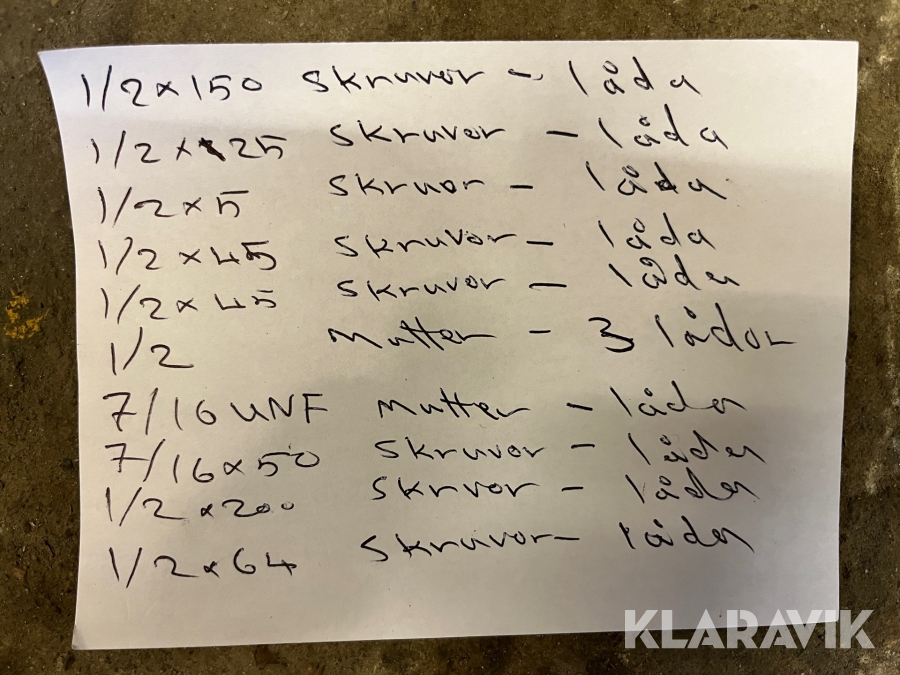 1/2 x 150 skruvor - låda
1/2 x 25 skruvor - låda
1/2 x 5 skruor - låda
1/2 x 45 skruvor - låda
1/2 x 45 skruvor - låda
1/2 Mutter - 3 lådor
7/16 UNF Mutter - låda
7/16 x 50 skruvor - låda
1/2 x 200 skrvor - låda
1/2 x 64 skruvor - låda
KLARAVIK